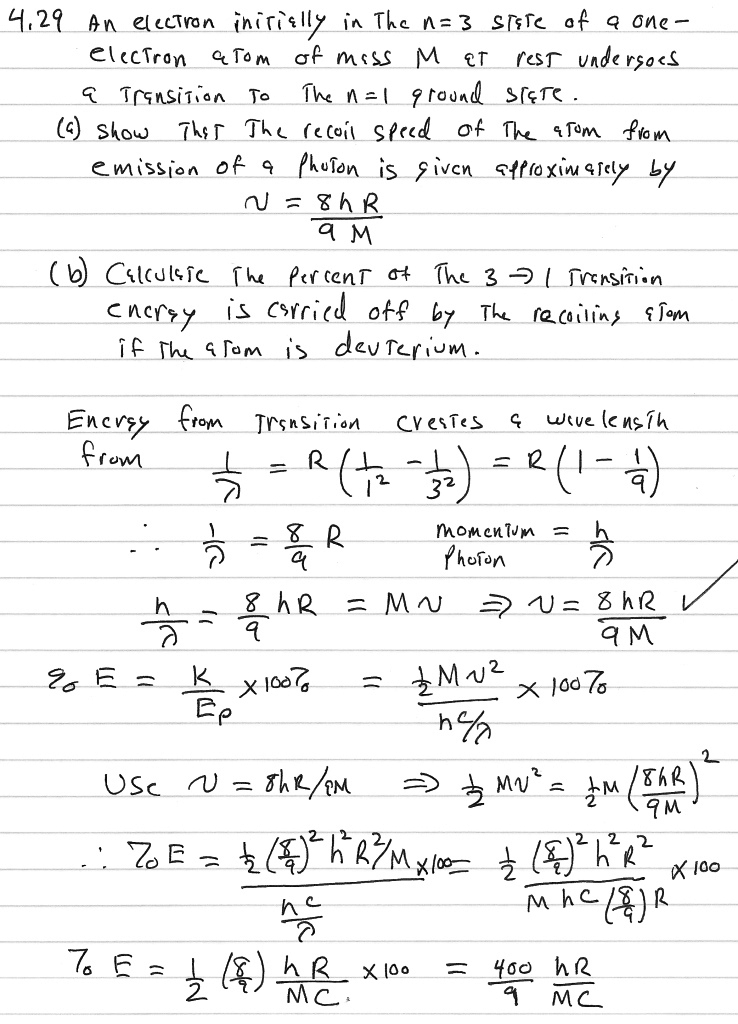 4.29 An electron initially in the n=3 state of a one-
electron atom of mass M at rest undergoes
a transition to the n=1 ground state.
(a) Show that the recoil speed of the atom from
emission of a photon is given approximately by
v = 8hR / 9M
(b) Calculate the percent of the 3 → 1 transition
energy is carried off by the recoiling atom
if the atom is deuterium.
Energy from transition creates a wavelength
from 1/λ = R(1/1² - 1/3²) = R(1 - 1/9)
∴ 1/λ = 8/9 R momentum photon = h/λ
h/λ = 8/9 hR = Mv ⇒ v = 8hR / 9M ✓
% E = K/Ep × 100% = ½Mv² / hc/λ × 100%
Use v = 8hR/9M ⇒ ½ Mv² = ½M (8hR / 9M)²
∴ % E = ½(8/9)² h²R²/M × 100 / hc/λ = ½ (8/9)² h²R² / M hc (8/9) R × 100
% E = ½ (8/9) hR / MC. × 100 = 400/9 hR / MC